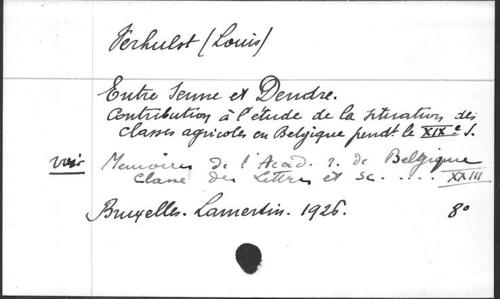 Verhulst (Louis)
Entre Senne et Dendre.
Contribution à l'étude de la situation des
classes agricoles en Belgique pendt. le XIXe S.
voir Memoires de l'Acad. r. de Belgique
Classe des Lettres et sc. .... XXIII
Bruxelles. Lamertin. 1926. 8°